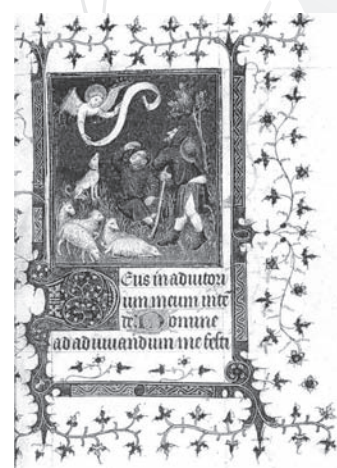 Deus in adiutori
um meum inte
de. Domine
ad adiuuandum me festi